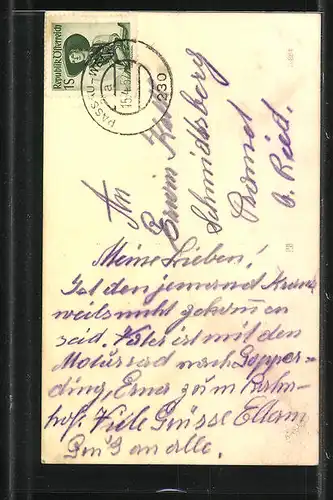 Republik Österreich
1S
PASSAU
a
15.4.
230
An
Erwin
Schmidsberg
b. Ried.
Meine Lieben!
Ist den jemand krank
weils nicht gekommen
seid. Vater ist mit den
Motorrad nach
ding, Erna zum Bahn-
hof. Viele Grüsse Eltern
Gruß an alle.